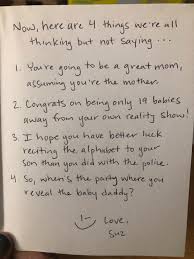 Now, here are 4 things we're all
thinking but not saying ...
1. You're going to be a great mom,
assuming you're the mother.
2. Congrats on being only 19 babies
away from your own reality show!
3. I hope you have better luck
reciting the alphabet to your
son than you did with the police.
4. So, when's the party where you
reveal the baby daddy?
Love,
Suz